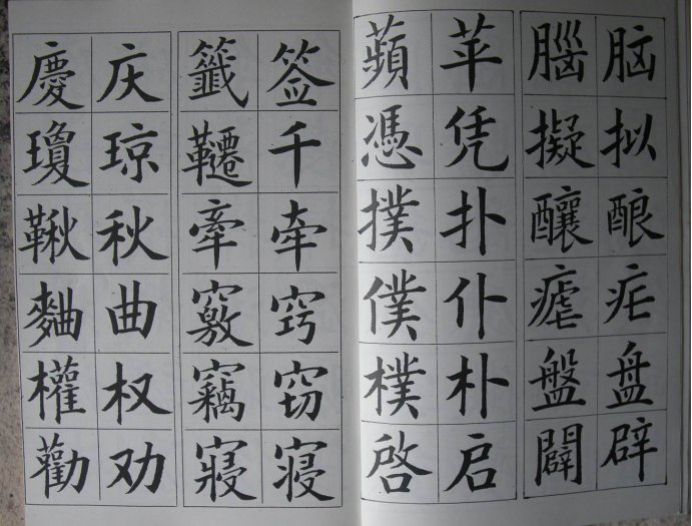 腦脑
擬拟
釀酿
瘧疟
盤盘
闢辟
蘋苹
憑凭
撲扑
僕仆
樸朴
啓启
籤签
韆千
牽牵
竅窍
竊窃
寢寝
慶庆
瓊琼
鞦秋
麯曲
權权
勸劝